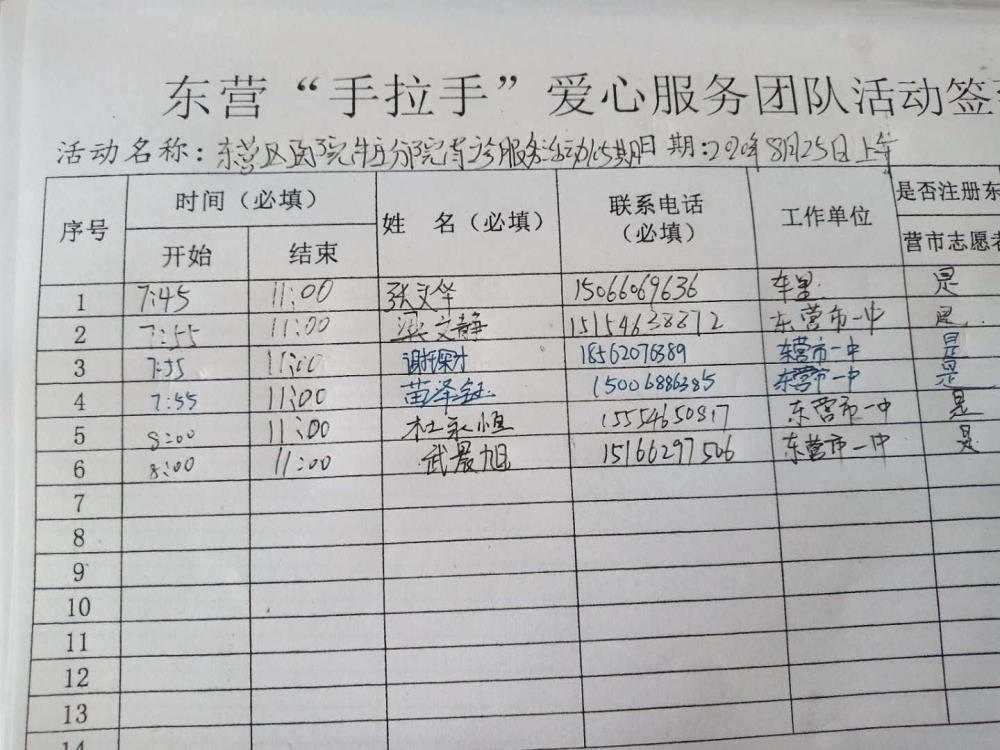 东营“手拉手”爱心服务团队活动签
活动名称：东营区医院牛庄分院导诊服务活动 日期：2020年8月25日上午
序号 时间（必填） 姓 名（必填） 联系电话（必填） 工作单位 是否注册东营市志愿者
开始 结束
1 7:45 11:00 张文华 15066069636 车里 是
2 7:55 11:00 梁文静 15154638372 东营市一中 是
3 7:55 11:00 18562076389 东营市一中 是
4 7:55 11:00 苗泽钰 15006886385 东营市一中 是
5 8:00 11:00 杜永恒 15554650817 东营市一中 是
6 8:00 11:00 武晨旭 15166297506 东营市一中 是
7
8
9
10
11
12
13
14